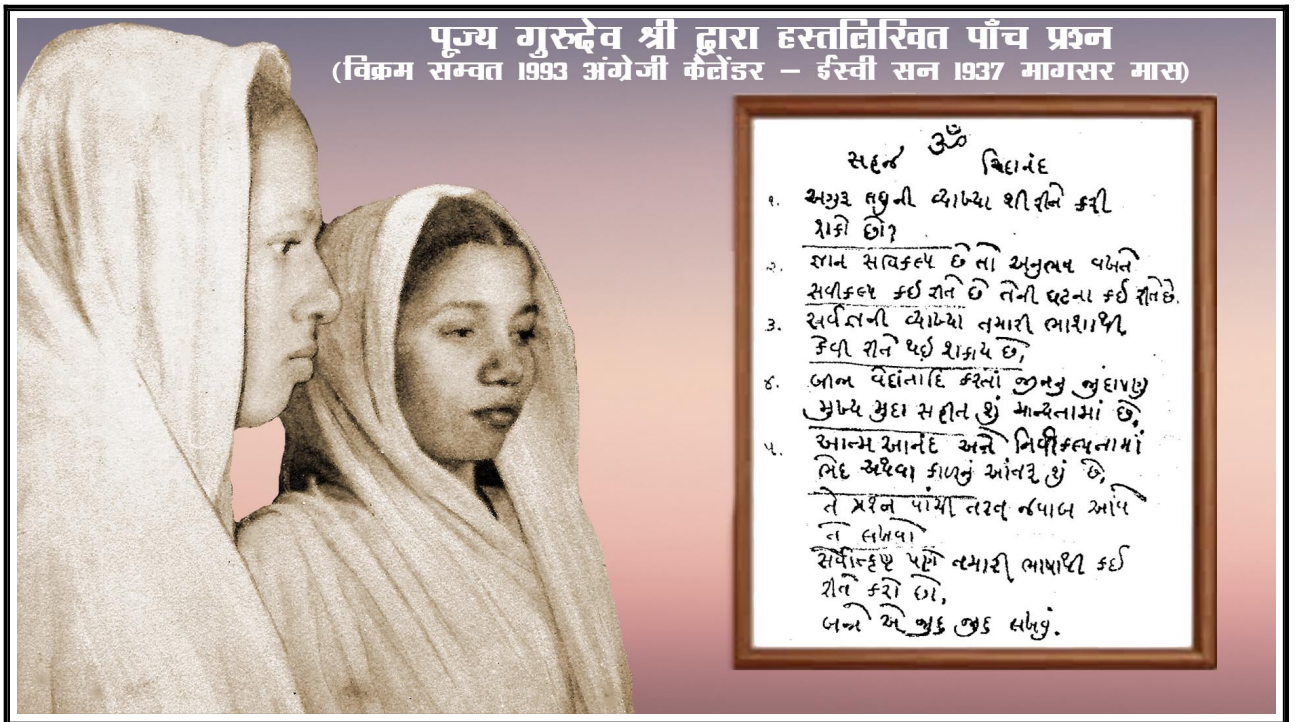 पूज्य गुरुदेव श्री द्वारा हस्तलिखित पाँच प्रश्न
(विक्रम सम्वत 1993 अंग्रेजी कैलेंडर – ईस्वी सन 1937 मागसर मास)
ॐ
સહજ ચિદાનંદ
૧. અગુરુ લઘુની વ્યાખ્યા શી રીતે કરી
શકો છો?
૨. જ્ઞાન સવિકલ્પ છે તો અનુભવ વખતે
સવીકલ્પ કઈ રીતે છે તેની ઘટના કઈ રીતે છે.
૩. સર્વજ્ઞની વ્યાખ્યા તમારી ભાશાથી
કેવી રીતે થઈ શકાય છે,
૪. બીજા વેદાંતાદિ કરતાં જીનનુ જુદાપણુ
મુખ્ય મુદા સહીત શું માન્યતામાં છે,
૫. આત્મ આનંદ અને નિર્વીકલ્પતામાં
ભેદ અથવા કાળનું આંતરૂ શું છે,
તે પ્રશ્ન વાંચી તરત જવાબ આવે
તે લખવો
સર્વોત્કૃષ્ટ પણે તમારી ભાષાથી કઈ
રીતે કરો છો,
બન્ને એ જુદુ જુદુ લખવું.